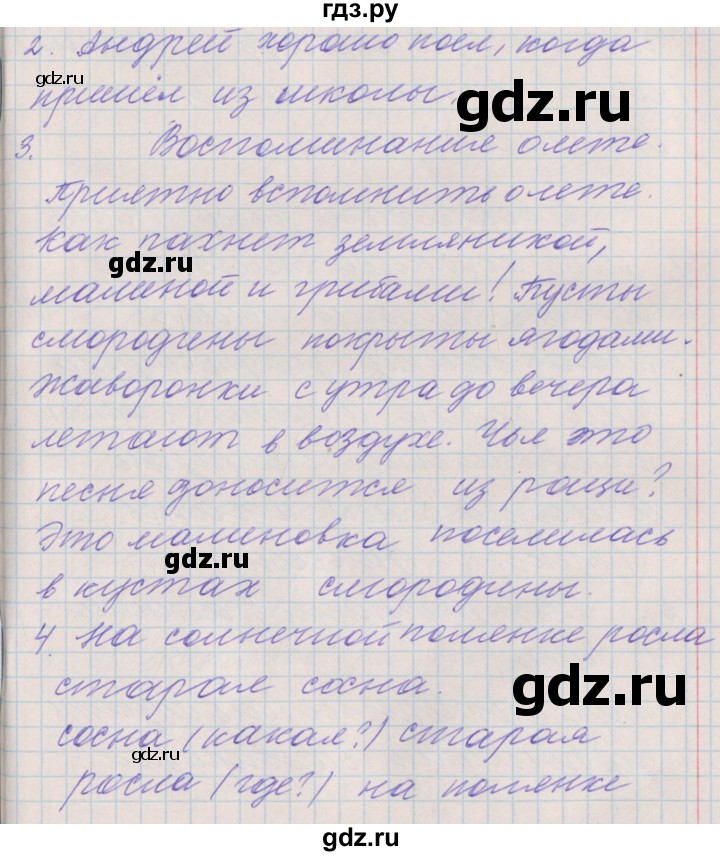 гдз.ру
2. Андрей хорошо поел, когда
gdz.ru
пришёл из школы.
gdz.ru
3. Воспоминания о лете.
Приятно вспомнить о лете.
Как пахнет земляникой,
gdz.ru
малиной и грибами! Пусты
gdz.ru
смородины покрыты ягодами.
Жаворонки с утра до вечера
летают в воздухе. Чья это
песня доносится из рощи?
gdz.ru
Это малиновка поселилась
gdz.ru
в кустах смородины.
4. На солнечной полянке росла
старая сосна.
gdz.ru
сосна (какая?) старая
gdz.ru
росла (где?) на полянке
gdz.ru